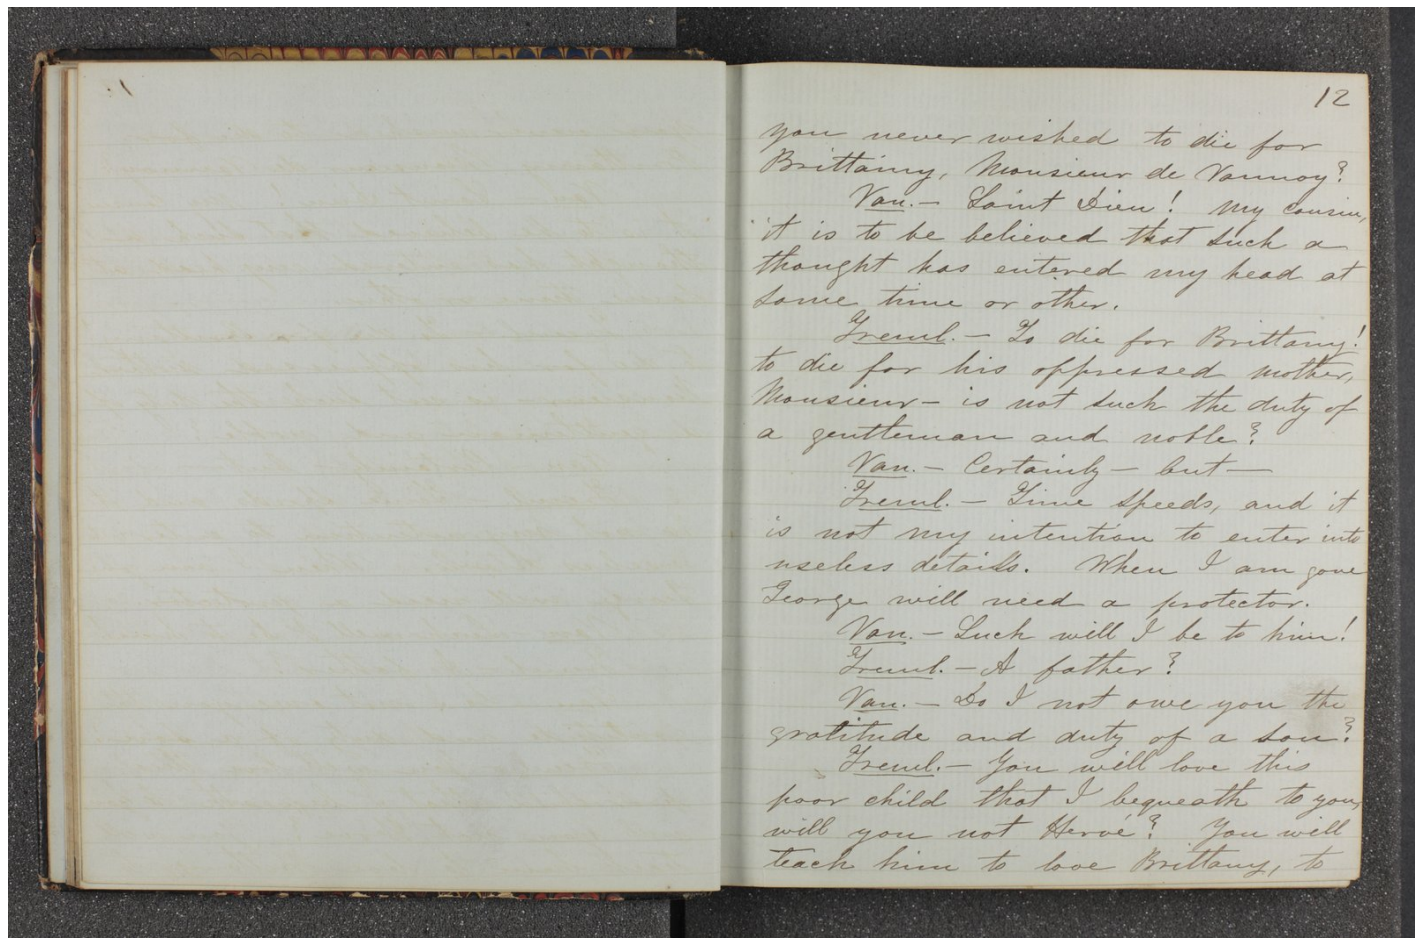 12
you never wished to die for
Brittainy, Monsieur de Vannoy?
Van. — Saint Dieu! My cousin,
it is to be believed that such a
thought has entered my head at
some time or other.
Treml. — To die for Brittany!
to die for his oppressed mother,
Monsieur — is not such the duty of
a gentleman and noble?
Van. — Certainly — but —
Treml. — Time speeds, and it
is not my intention to enter into
useless details. When I am gone
George will need a protector.
Van. — Such will I be to him!
Treml. — A father?
Van. — Do I not owe you the
gratitude and duty of a son?
Treml. — You will love this
poor child that I bequeath to you,
will you not Hervé? You will
teach him to love Brittany, to